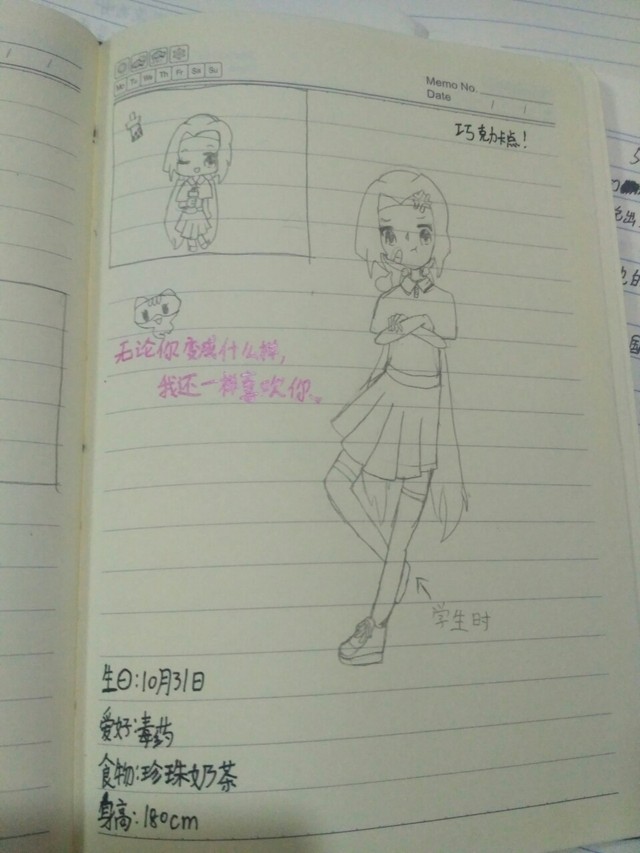 Mo Tu We Th Fr Sa Su
Memo No.
Date
巧克力卡点！
无论你变成什么样，
我还一样喜欢你。
学生时
生日：10月31日
爱好：毒药
食物：珍珠奶茶
身高：180cm